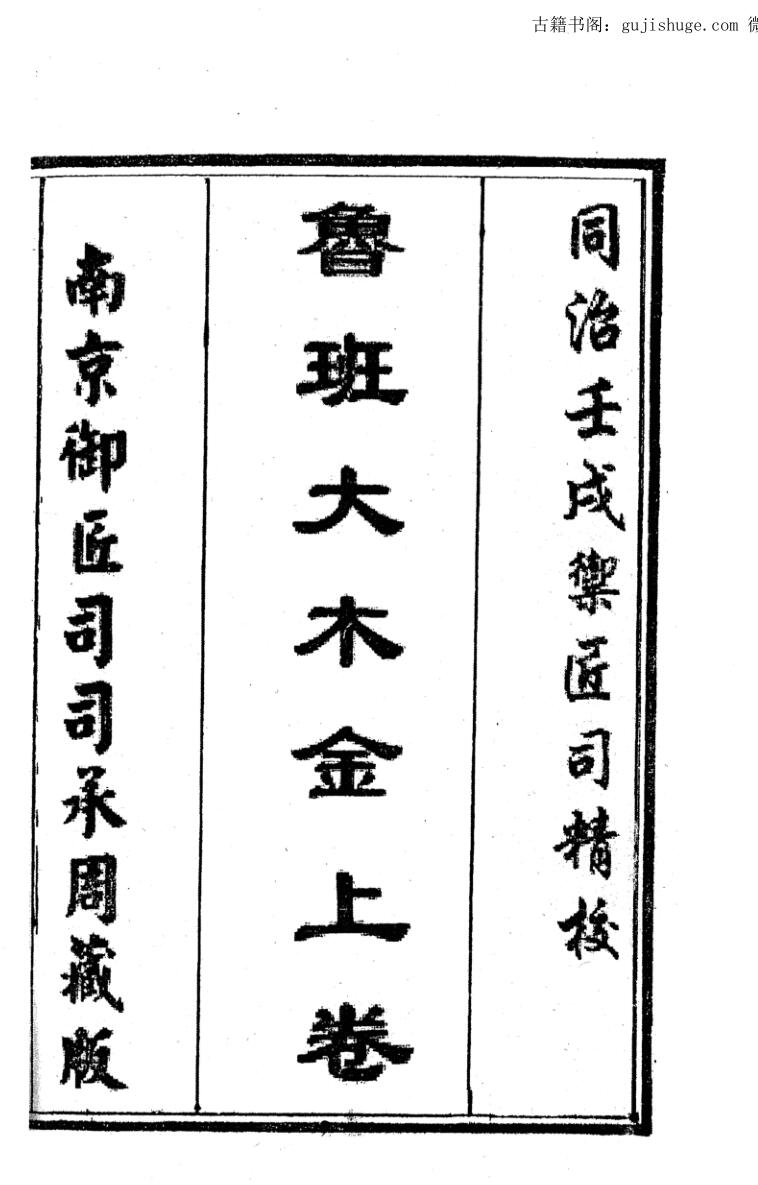 古籍书阁：gujishuge.com 微
同治壬戌禦匠司精校
魯班大木金上卷
南京御匠司司承周藏版